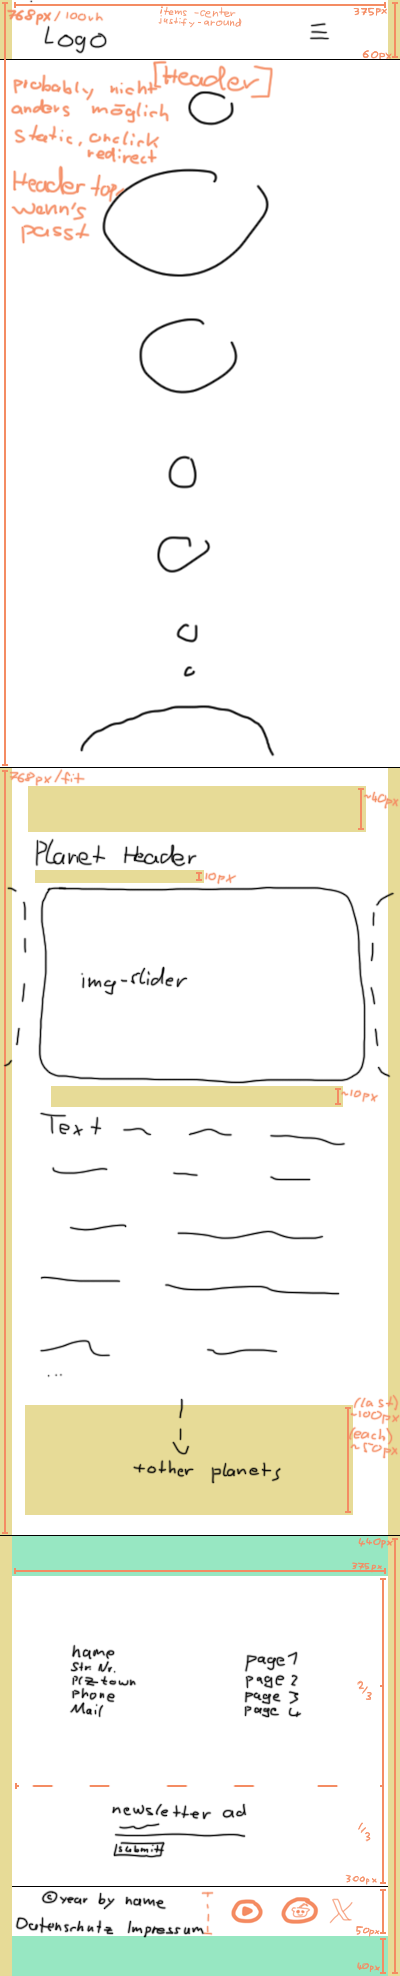 768px / 100vh
items-center
justify-around
375px
Logo
60px
[Header]
probably nicht
anders möglich
static, onclick
redirect
Header top,
wenn's
passt
768px/fit
~40px
Planet Header
10px
img-slider
~10px
Text
...
(last)
~100px
(each)
~50px
+other planets
440px
375px
name
Str. Nr.
Plz town
Phone
Mail
page 1
page 2
page 3
page 4
2/3
newsletter ad
submit
1/3
300px
©year by name
Datenschutz Impressum
50px
40px